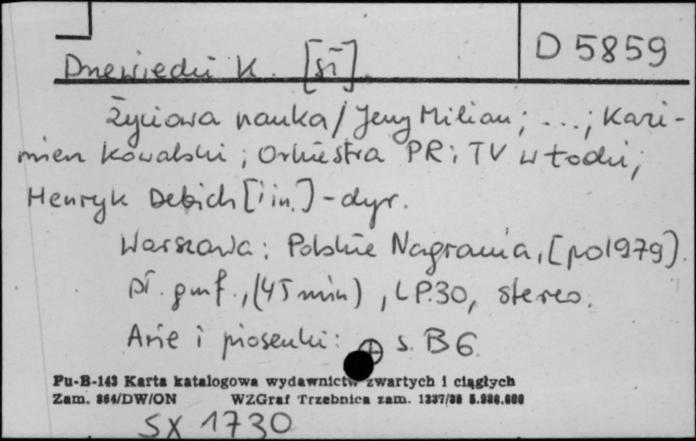 D 5859
Drzewiecki K. [sł]
Życiowa nauka / Jerzy Milian; ...; Kazi-
mierz Kowalski; Orkiestra PR i TV w Łodzi;
Henryk Debich [i in.] - dyr.
Warszawa: Polskie Nagrania, [po 1979].
pł. gmf., (45 min), LP.30, stereo.
Arie i piosenki: s. B 6
Pu-B-143 Karta katalogowa wydawnictw zwartych i ciągłych
Zam. 864/DW/ON WZGraf Trzebnica zam. 1337/86 5.986.600
SX 1730